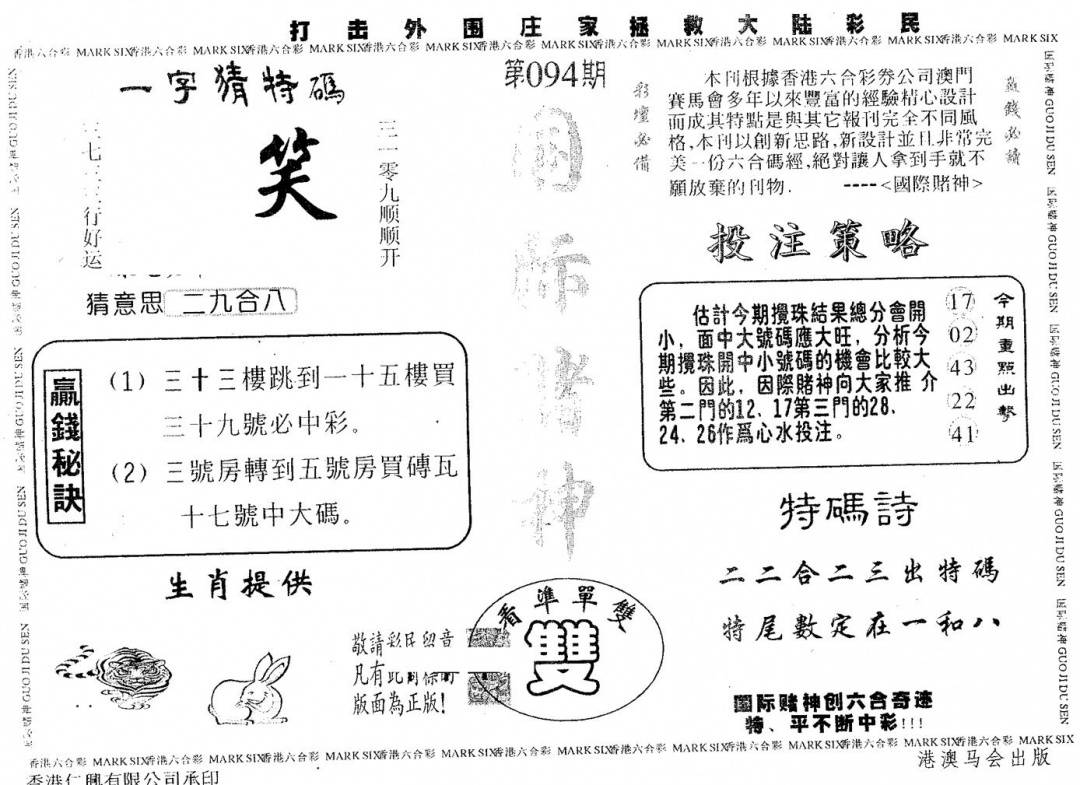 打击外围庄家拯救大陆彩民
香港六合彩 MARK SIX香港六合彩 MARK SIX香港六合彩 MARK SIX香港六合彩 MARK SIX香港六合彩 MARK SIX香港六合彩 MARK SIX香港六合彩 MARK SIX香港六合彩 MARK SIX香港六合彩 MARK SIX
一字猜特碼
笑
三一零九顺顺开
行好运
猜意思 二九合八
贏錢秘訣
(1) 三十三樓跳到一十五樓買
三十九號必中彩。
(2) 三號房轉到五號房買磚瓦
十七號中大碼。
生肖提供
第094期
國際賭神
敬請彩民留意
凡有此國際賭
版面為正版!
看準單雙
雙
彩壇必備
本刊根據香港六合彩券公司澳門
賽馬會多年以來豐富的經驗精心設計
而成其特點是與其它報刊完全不同風
格,本刊以創新思路,新設計並且非常完
美一份六合碼經,絕對讓人拿到手就不
願放棄的刊物. ----<國際賭神>
贏錢必讀
投注策略
估計今期攪珠結果總分會開
小，面中大號碼應大旺，分析今
期攪珠開中小號碼的機會比較大
些。因此，因際賭神向大家推介
第二門的12、17第三門的28、
24、26作爲心水投注。
17
02
43
22
41
今期重點出擊
特碼詩
二二合二三出特碼
特尾數定在一和八
國际赌神创六合奇迹
特、平不断中彩!!!
香港六合彩 MARK SIX香港六合彩 MARK SIX香港六合彩 MARK SIX香港六合彩 MARK SIX香港六合彩 MARK SIX香港六合彩 MARK SIX香港六合彩 MARK SIX香港六合彩 MARK SIX香港六合彩 MARK SIX
港澳马会出版
香港仁興有限公司承印